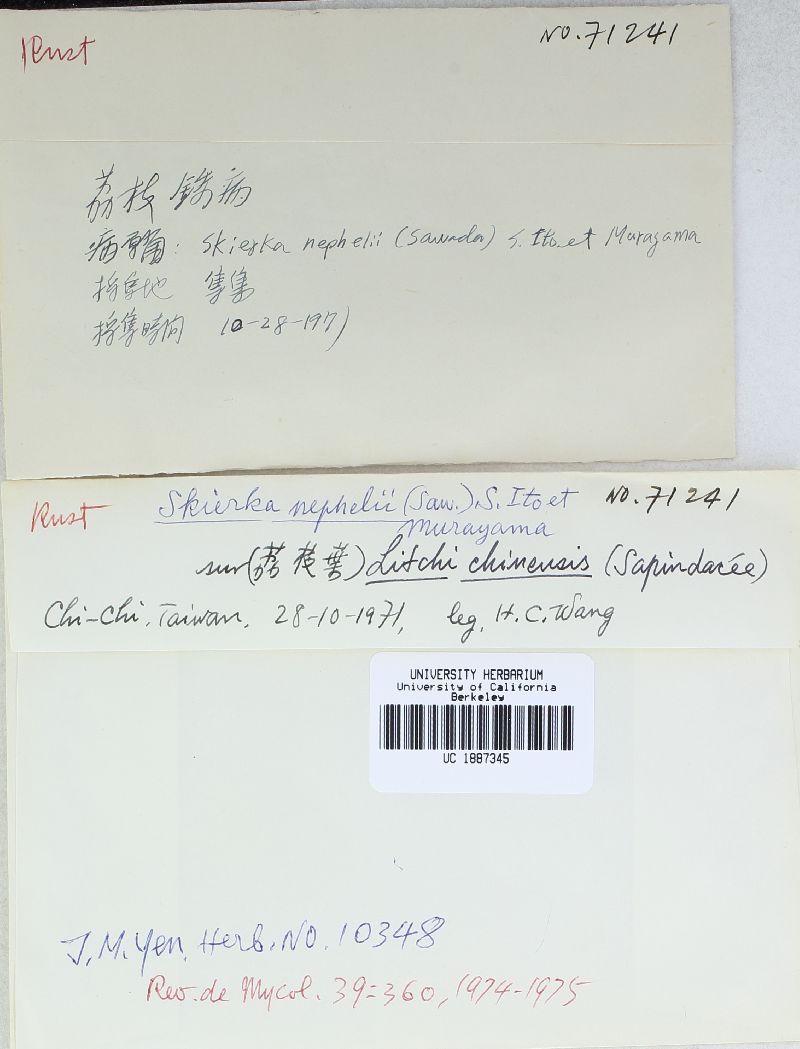 Rust
NO. 71241
荔枝銹病
病原菌: Skierka nephelii (Sawada) S. Ito et Murayama
採集地 集集
採集時間 10-28-1971
Rust
Skierka nephelii (Saw.) S. Ito et
NO. 71241
Murayama
sur (荔枝葉) Litchi chinensis (Sapindacée)
Chi-Chi, Taiwan, 28-10-1971, leg. H. C. Wang
UNIVERSITY HERBARIUM
University of California
Berkeley
UC 1887345
J. M. Yen, Herb. NO. 10348
Rev. de Mycol. 39=360, 1974-1975